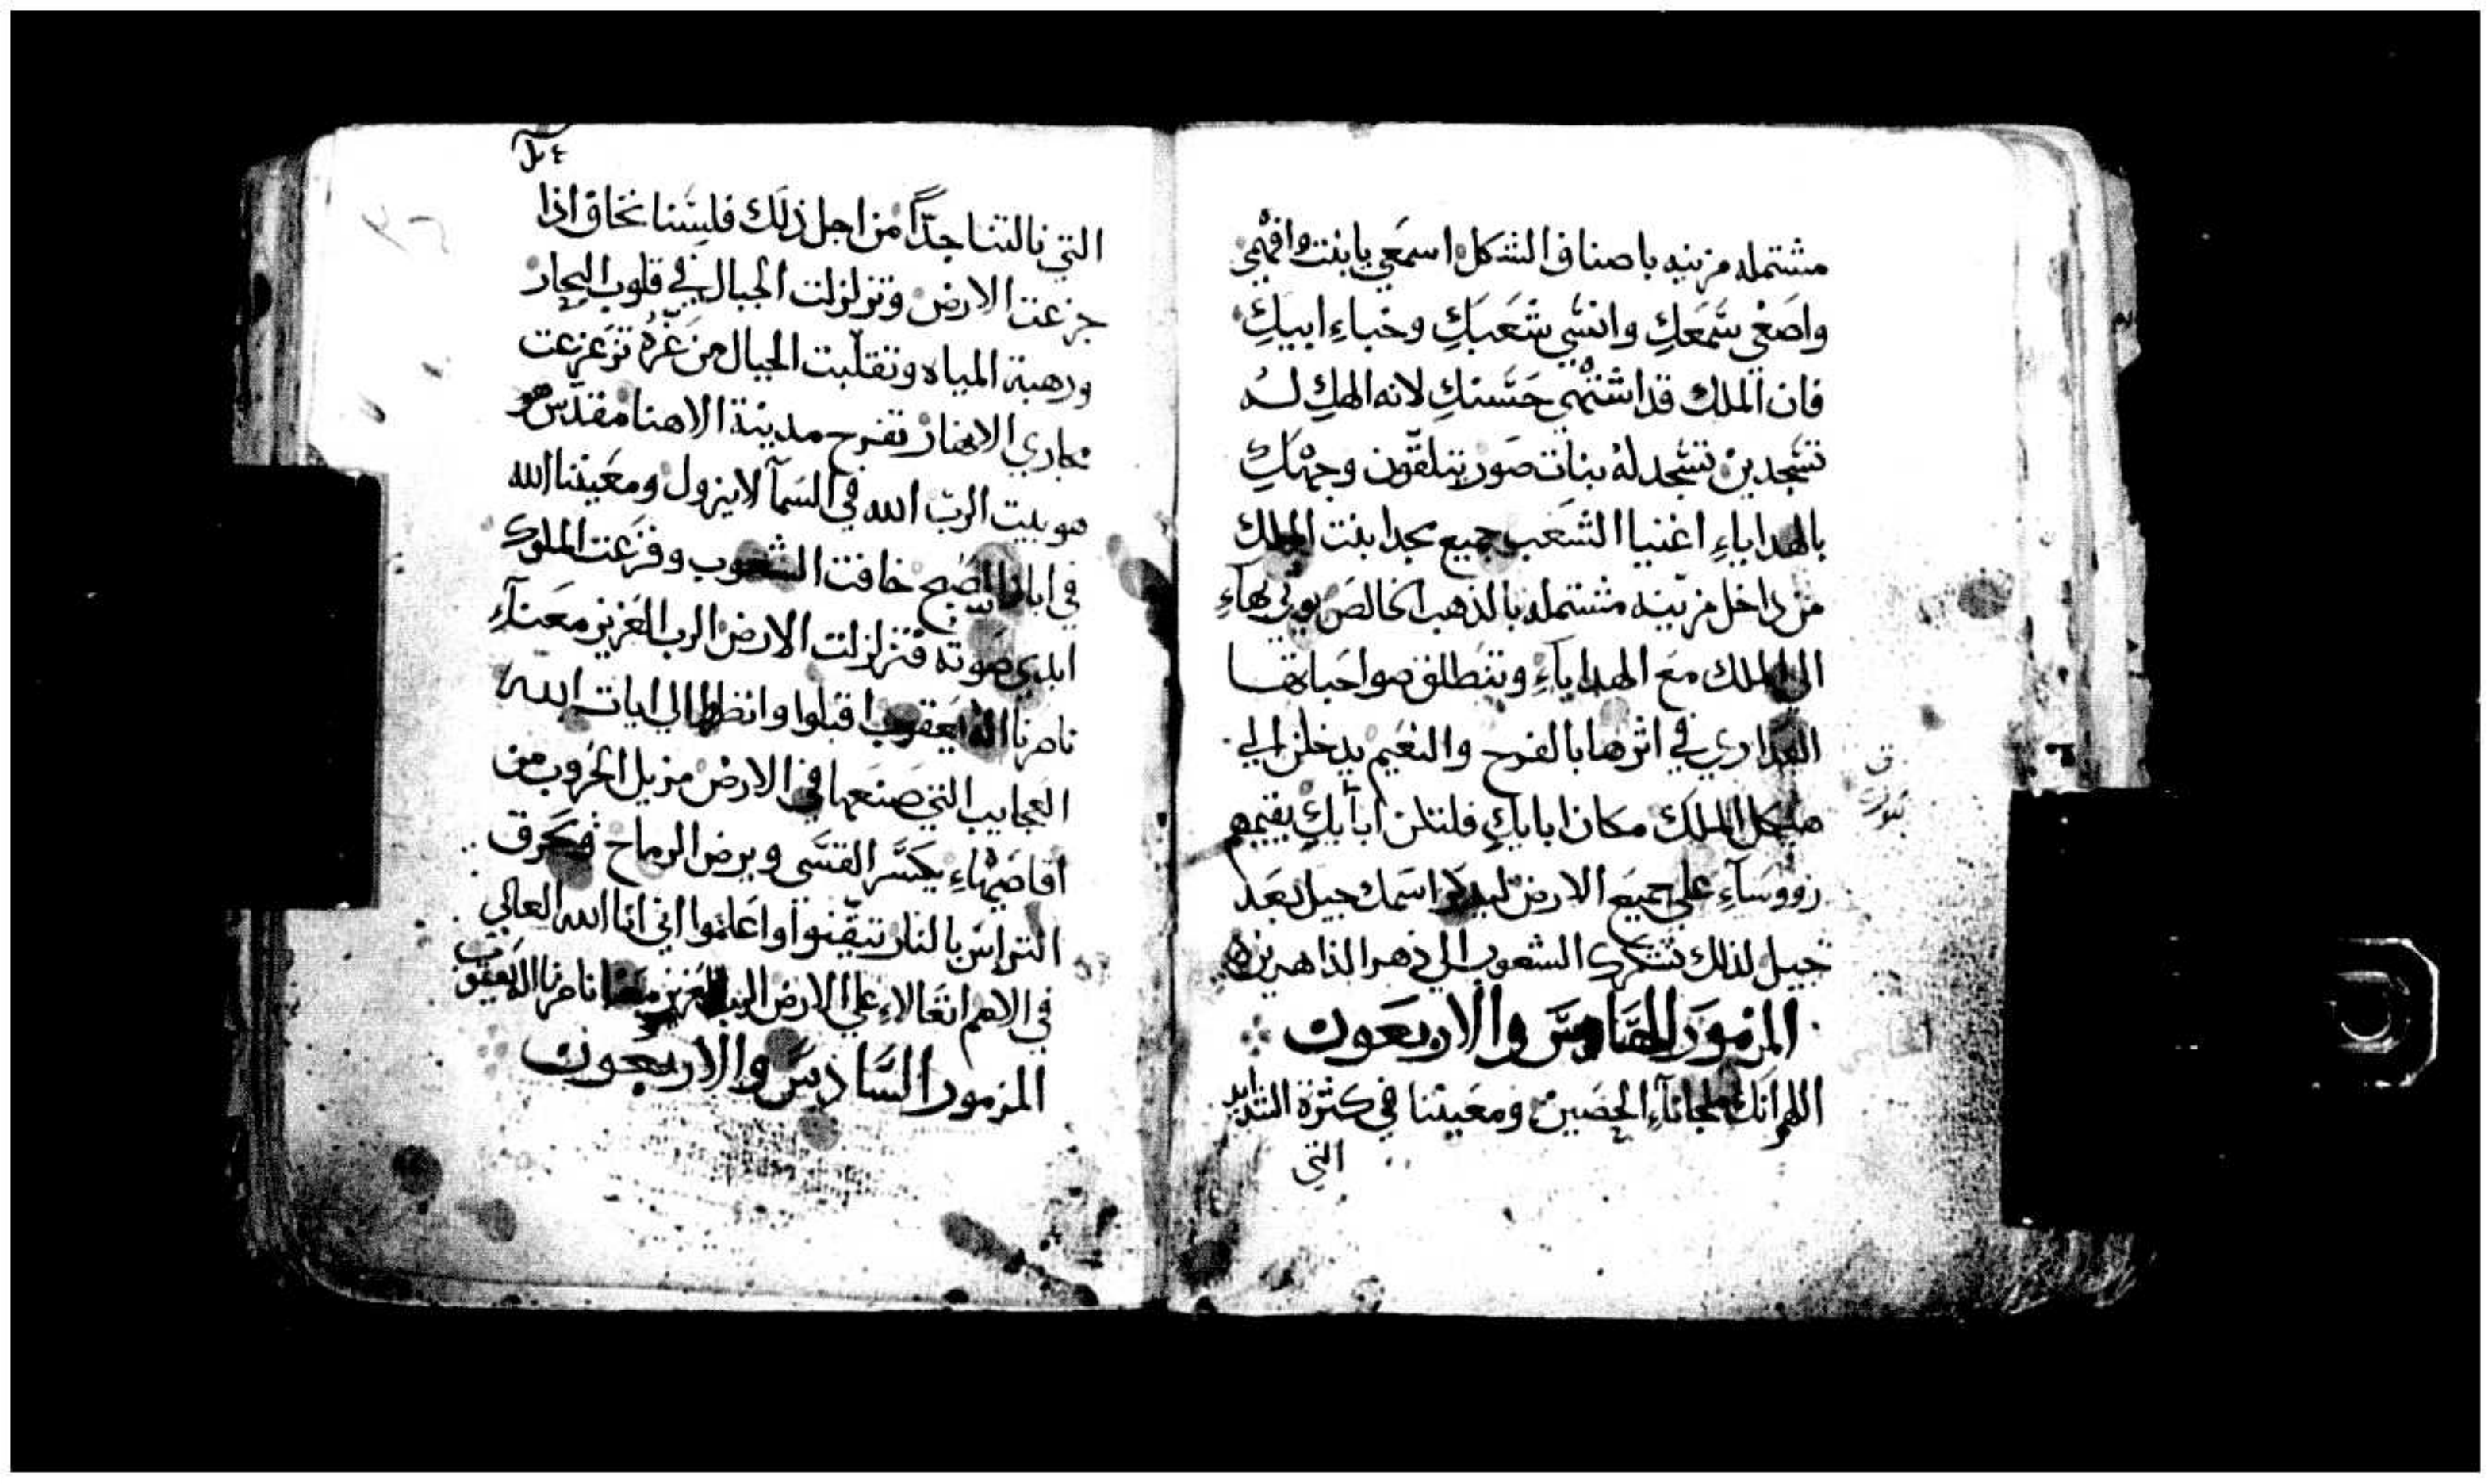 مشتمله مزينه باصناف الشكل اسمعي يابنت وافهمي
واصغي سمعك وانسي شعبك وخباء ابيك
فان الملك قد اشتهي حسنك لانه الهك له
تسجدين تسجد له بنات صور يتلقون وجهك
بالهداياء اغنياا الشعب جميع مجد ابنت الملك
من داخل مزينه مشتمله بالذهب الخالص يوتي بهاء
الي الملك مع الهداياء وتنطلق صواحباتها
العداري في اثرها بالفرح والنعيم يدخلن الي
هيكل الملك مكان اباىك فلتلن ابآيك يقيمهم
رووسآء علي جميع الارض اسمك جيل بعد
جيل لذلك تشكرك الشعوب الي دهر الداهرين
المزمور الخامس والاربعون
اللهم انك ملجانآء الحصين ومعيننا في كثرة الشدايد
التي
التي نالتنا جدّاً من اجل ذلك فليسنا نخاف اذا
جزعت الارض وتزلزلت الجبال في قلوب البحار
ورهبة المياه وتقلّبت الجبال من عزه تزعزعت
مجاري الانهار تفرح مدينة الاهنا مقدس هو
هو بيت الربّ الله في السمآ لا يزول ومعيننا الله
في ابان الصبح خافت الشعوب وفزعت الملوك
ابدي صوته فتزلزلت الارض الرب العزيز معنآء
ناصرنا اله يعقوب اقبلوا وانظروا الي ايات الله
العجايب التي صنعها في الارض مزيل الحروب من
اقاصيهاء يكسّر القسي ويرض الرماح ومحرق
التراس بالنار تيقّنوا واعلموا اني انا الله العالي
في الامم اتعالاء علي الارض الرب العزيز معنا ناصرنا اله يعقوب
المزمور السّادس والاربعون